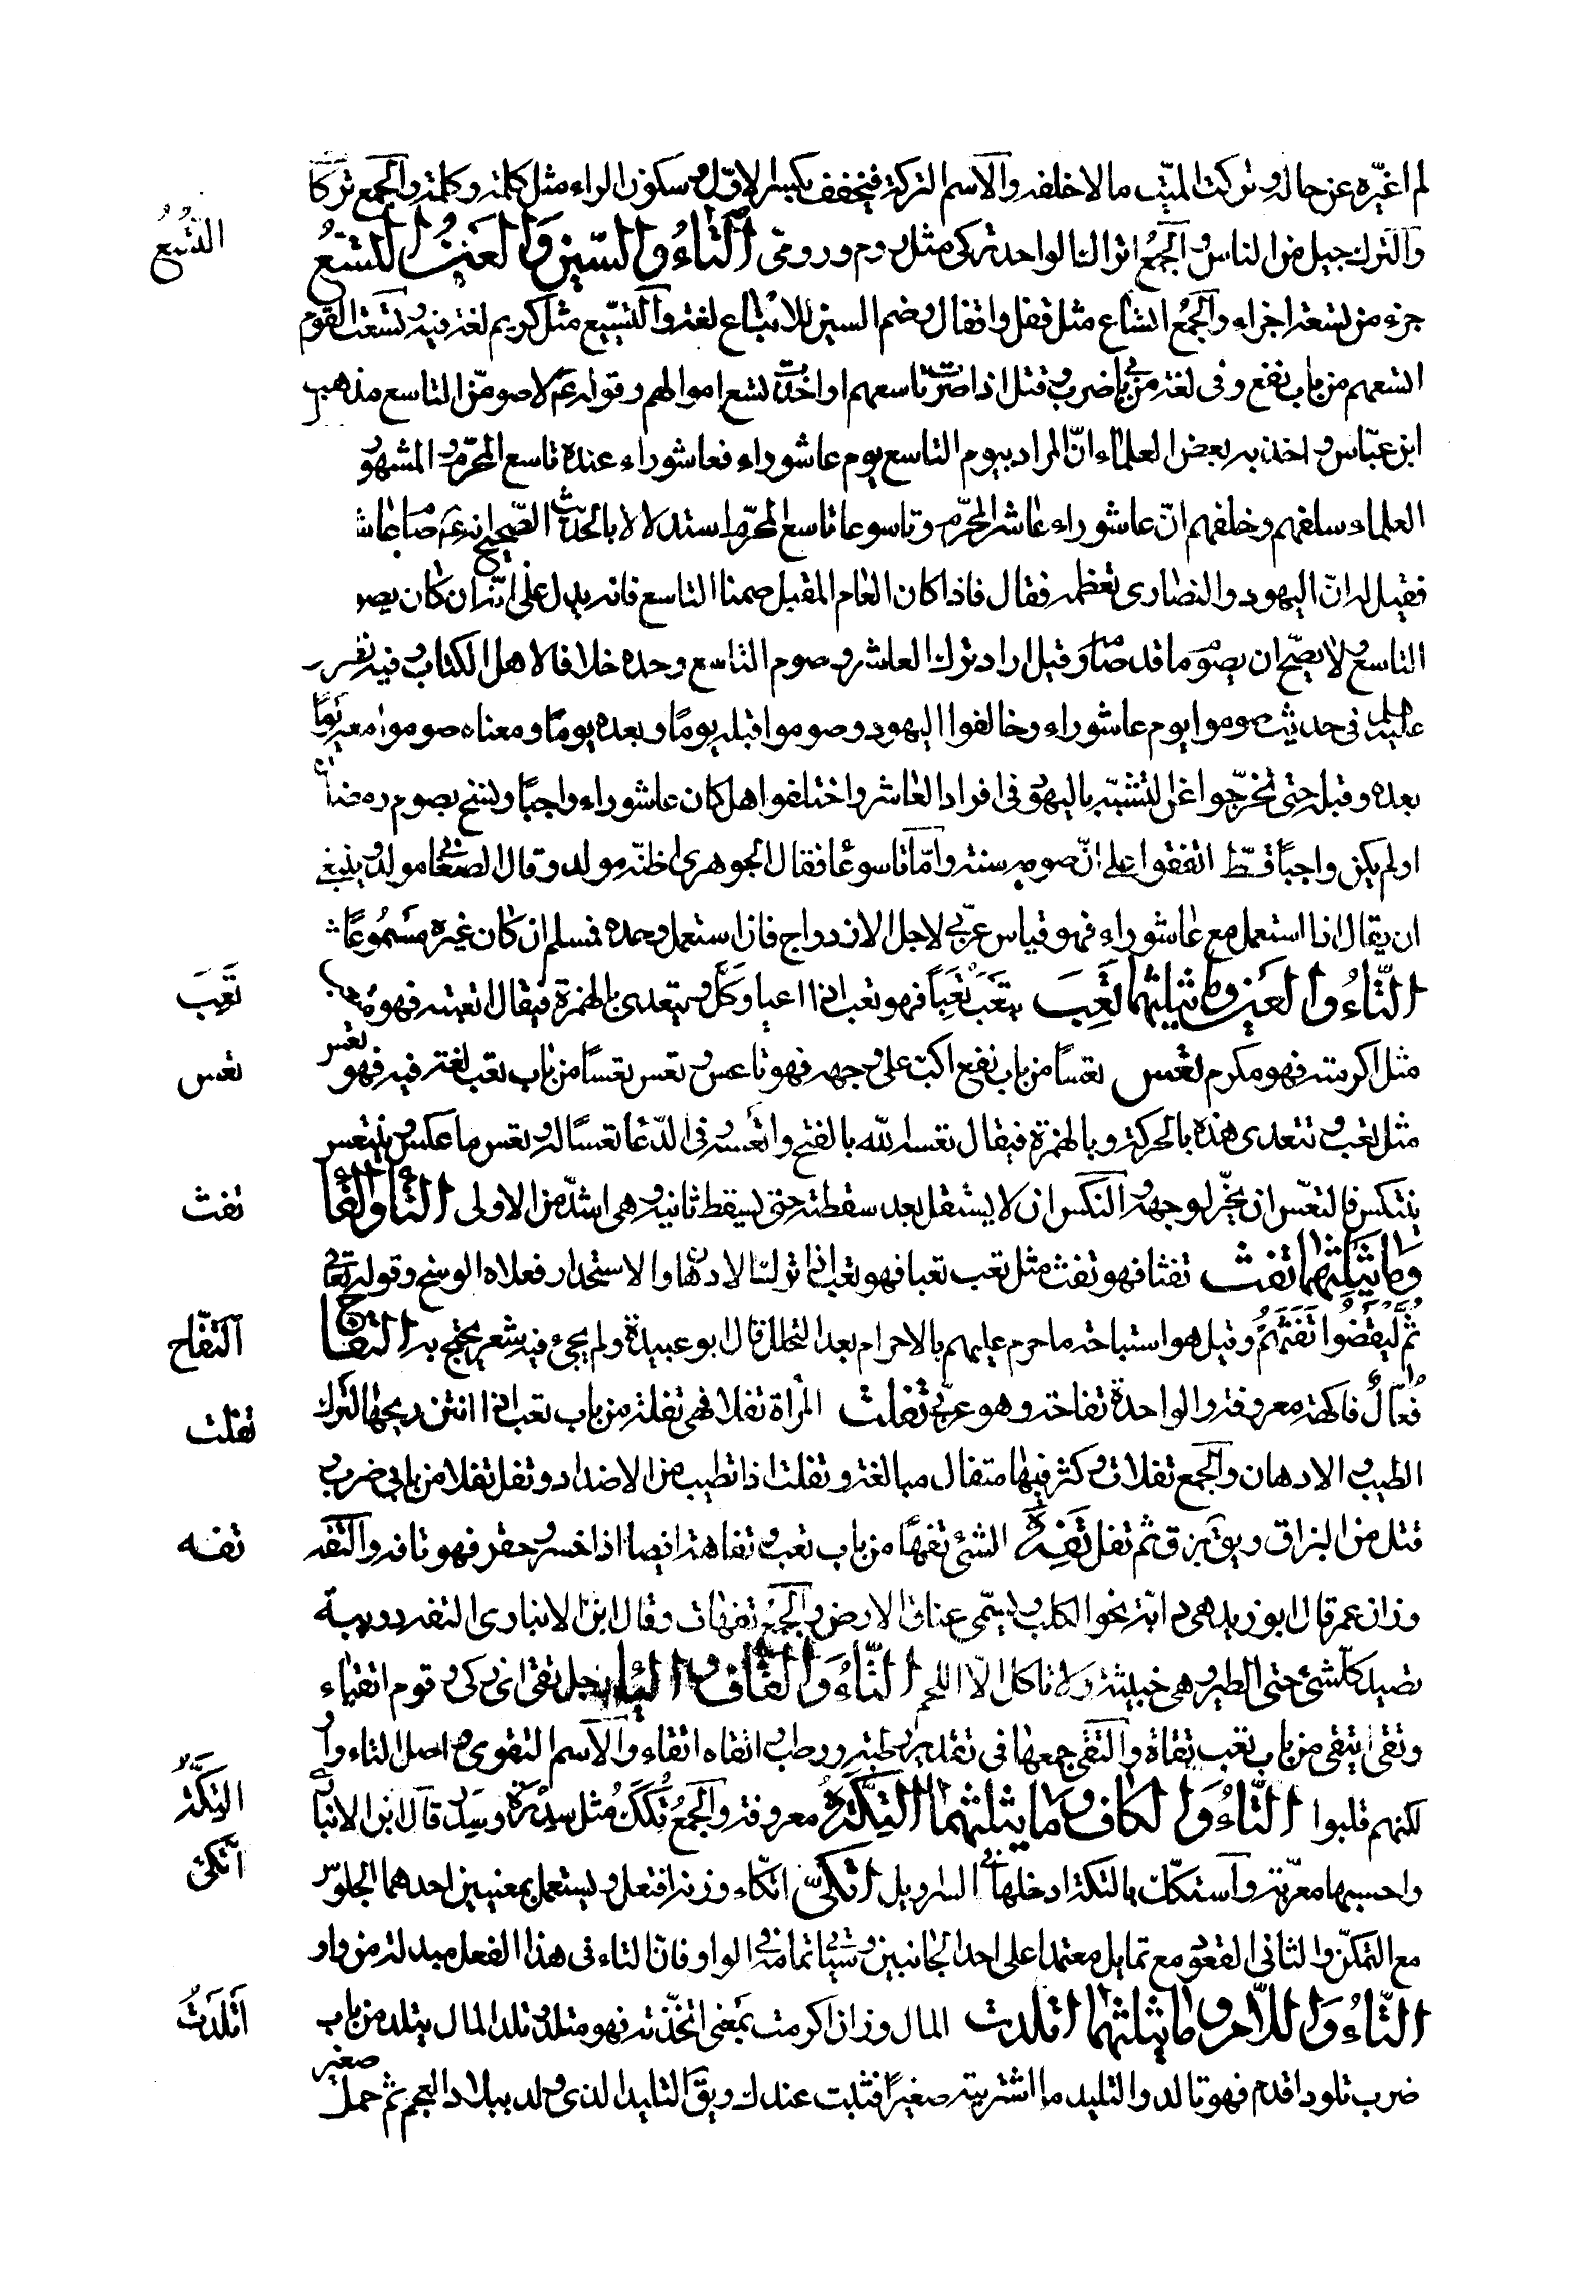 لم اغيّره عن حاله وتركت الميّت مالا خلفه والاسم التركة فيخفف بكسر الاوّل وسكون الراء مثل كلمة وكلمة والجمع تركا
والترك جيل من الناس والجمع اتراك الواحد تركى مثل روم ورومى التّاءُ والسّين وَالعَينُ التُسُع
التُسُع
جزء من تسعة اجزاء والجمع اتساع مثل قفل واقفال وضم السين للاتباع لغة والتسيع مثل كريم لغة فيه وتسعت القوم
اتسعهم من باب نفع وفى لغة من بابى ضرب وقتل اذا صرت تاسعهم او اخذت تسع اموالهم وقوله عم لاصومنّ التاسع مذهب
ابن عبّاس واخذ به بعض العلماء انّ المراد بيوم التاسع يوم عاشوراء فعاشوراء عنده تاسع المحرّم والمشهور
العلماء سلفهم وخلفهم انّ عاشوراء عاشر المحرّم وتاسوعا تاسع المحرّم استدلالا بالحديث الصحيح انه عم صام عاش
فقيل له انّ اليهود والنصارى تعظمه فقال فاذا كان العام المقبل صمنا التاسع فانه يدل على انّه ان كان يصو
التاسع ولا يصحّ ان يصوم ما قد صام وقيل اراد ترك العاشر وصوم التاسع وحده خلافا لاهل الكتاب وفيه نظر
عليه فى حديث صوموا يوم عاشوراء وخالفوا اليهود وصوموا قبله يومًا وبعده يومًا ومعناه صوموا معه يومًا
بعده وقبله حتى تخرجوا عن التشبّه باليهود فى افراد العاشر واختلفوا هل كان عاشوراء واجبًا ونسخ بصوم رمضان
او لم يكن واجبًا قطّ اتفقوا على انّ صومه سنة وامّا تاسوعًا فقال الجوهرى اظنّه مولد وقال الصغانى مولد وينبغى
ان يقال اذا استعمل مع عاشوراء فهو قياس عربّى لاجل الازدواج فان استعمل وحده فمسلم ان كان غيره مسمُوعًا
التّاءُ والعَين وما يثلثهما تَعِبَ يتعَبُ تعَبًا فهو تعب اذا اعيا وكلّ ويتعدى بالهمزة فيقال اتعبته فهو
تَعِبَ
مثل اكرمته فهو مكرم تعس تعسًا من باب نفع اكبّ على وجهه فهو تاعس وتعس تعسًا من باب تعب لغة فيه فهو تعس
تعس
مثل تعب وتتعدى هذه بالحركة وبالهمزة فيقال تعسه الله بالفتح واتعسه وفى الدّعا تعسًا له وتعس ما عكس وينتعس
ينتكس فالتعس ان يخّر لوجهه والنكس ان لا يستقل بعد سقطته حتى يسقط ثانية وهى اشدّ من الاولى التّا والفا
تفث
وما يثلثهما تفث تفثا فهو تفث مثل تعب تعبا فهو تعب اذا ترك الادهان والاستحداد فعلاه الوسخ وقوله تعالى
ثُمَّ ليَقضُوا تَفَثَهُم وقيل هو استباحة ما حرم عليهم بالاحرام بعد التحلل قال ابو عبيدة ولم يجئ فيه شعر يحتج به التفّاح
التفّاح
فُعّالٌ فاكهة معروفة والواحدة تفاحة وهو عربّى تفلت المرأة تفلا فهى تفلة من باب تعب اذا انتن ريحها لترك
تفلت
الطيب والادهان والجمع تفلات وكثر فيها متفال مبالغة وتفلت اذا تطيب من الاضداد وتفل تفلا من بابى ضرب و
قتل من البزاق ويق بزق ثم تفل تَفِهَ الشئ تفهًا من باب تعب وتفاهة ايضا اذا خس وحقر فهو تافه والتفه
تفه
وزان عمر قال ابو زيد هى دابة نحو الكلب ويسمّى عناق الارض والجمع تفهات وقال ابن الانبارى التفه دويبة
تصيد كلّ شئ حتى الطير وهى خبيثة ولا تاكل الّا اللحم التّاءُ وَالقاف والياء رجل تقى اى زكى وقوم اتقياء
وتقى يتقى من باب تعب تقاة والتقى جمعها فى تقدير رطبة ورطب واتقاه اتقاء والاسم التقوى واصل التاء واو
لكنهم قلبوا التّاءُ وَالكاف وَما يثلثهُما التِكَّةُ معروفة والجمعُ تِكَكٌ مثل سدرة وسدر قال ابن الانبارى
التِكَّةُ
واحسبها معرّبة واستكت بالتكة ادخلها فى السراويل اتّكئ اتكاء وزنه افتعل ويستعمل بمعنيين احدهما الجلوس
اتَّكى
مع التمكّن والثانى القعود مع تمايل معتمدا على احد الجانبين وسيأتى تمامه فى الواو فان التاء فى هذا الفعل مبدلة من واو
التّاءُ وَاللّام وما يثلثهما اتلدت المال وزان اكرمت بمعنى اتخذته فهو متلد وتلد المال يتلد من باب
اَتلَدتُ
ضرب تلودا قدم فهو تالد والتليد ما اشتريته صغيرًا فثبت عندك ويق التليد الذى ولد ببلاد العجم ثم حمل صغير